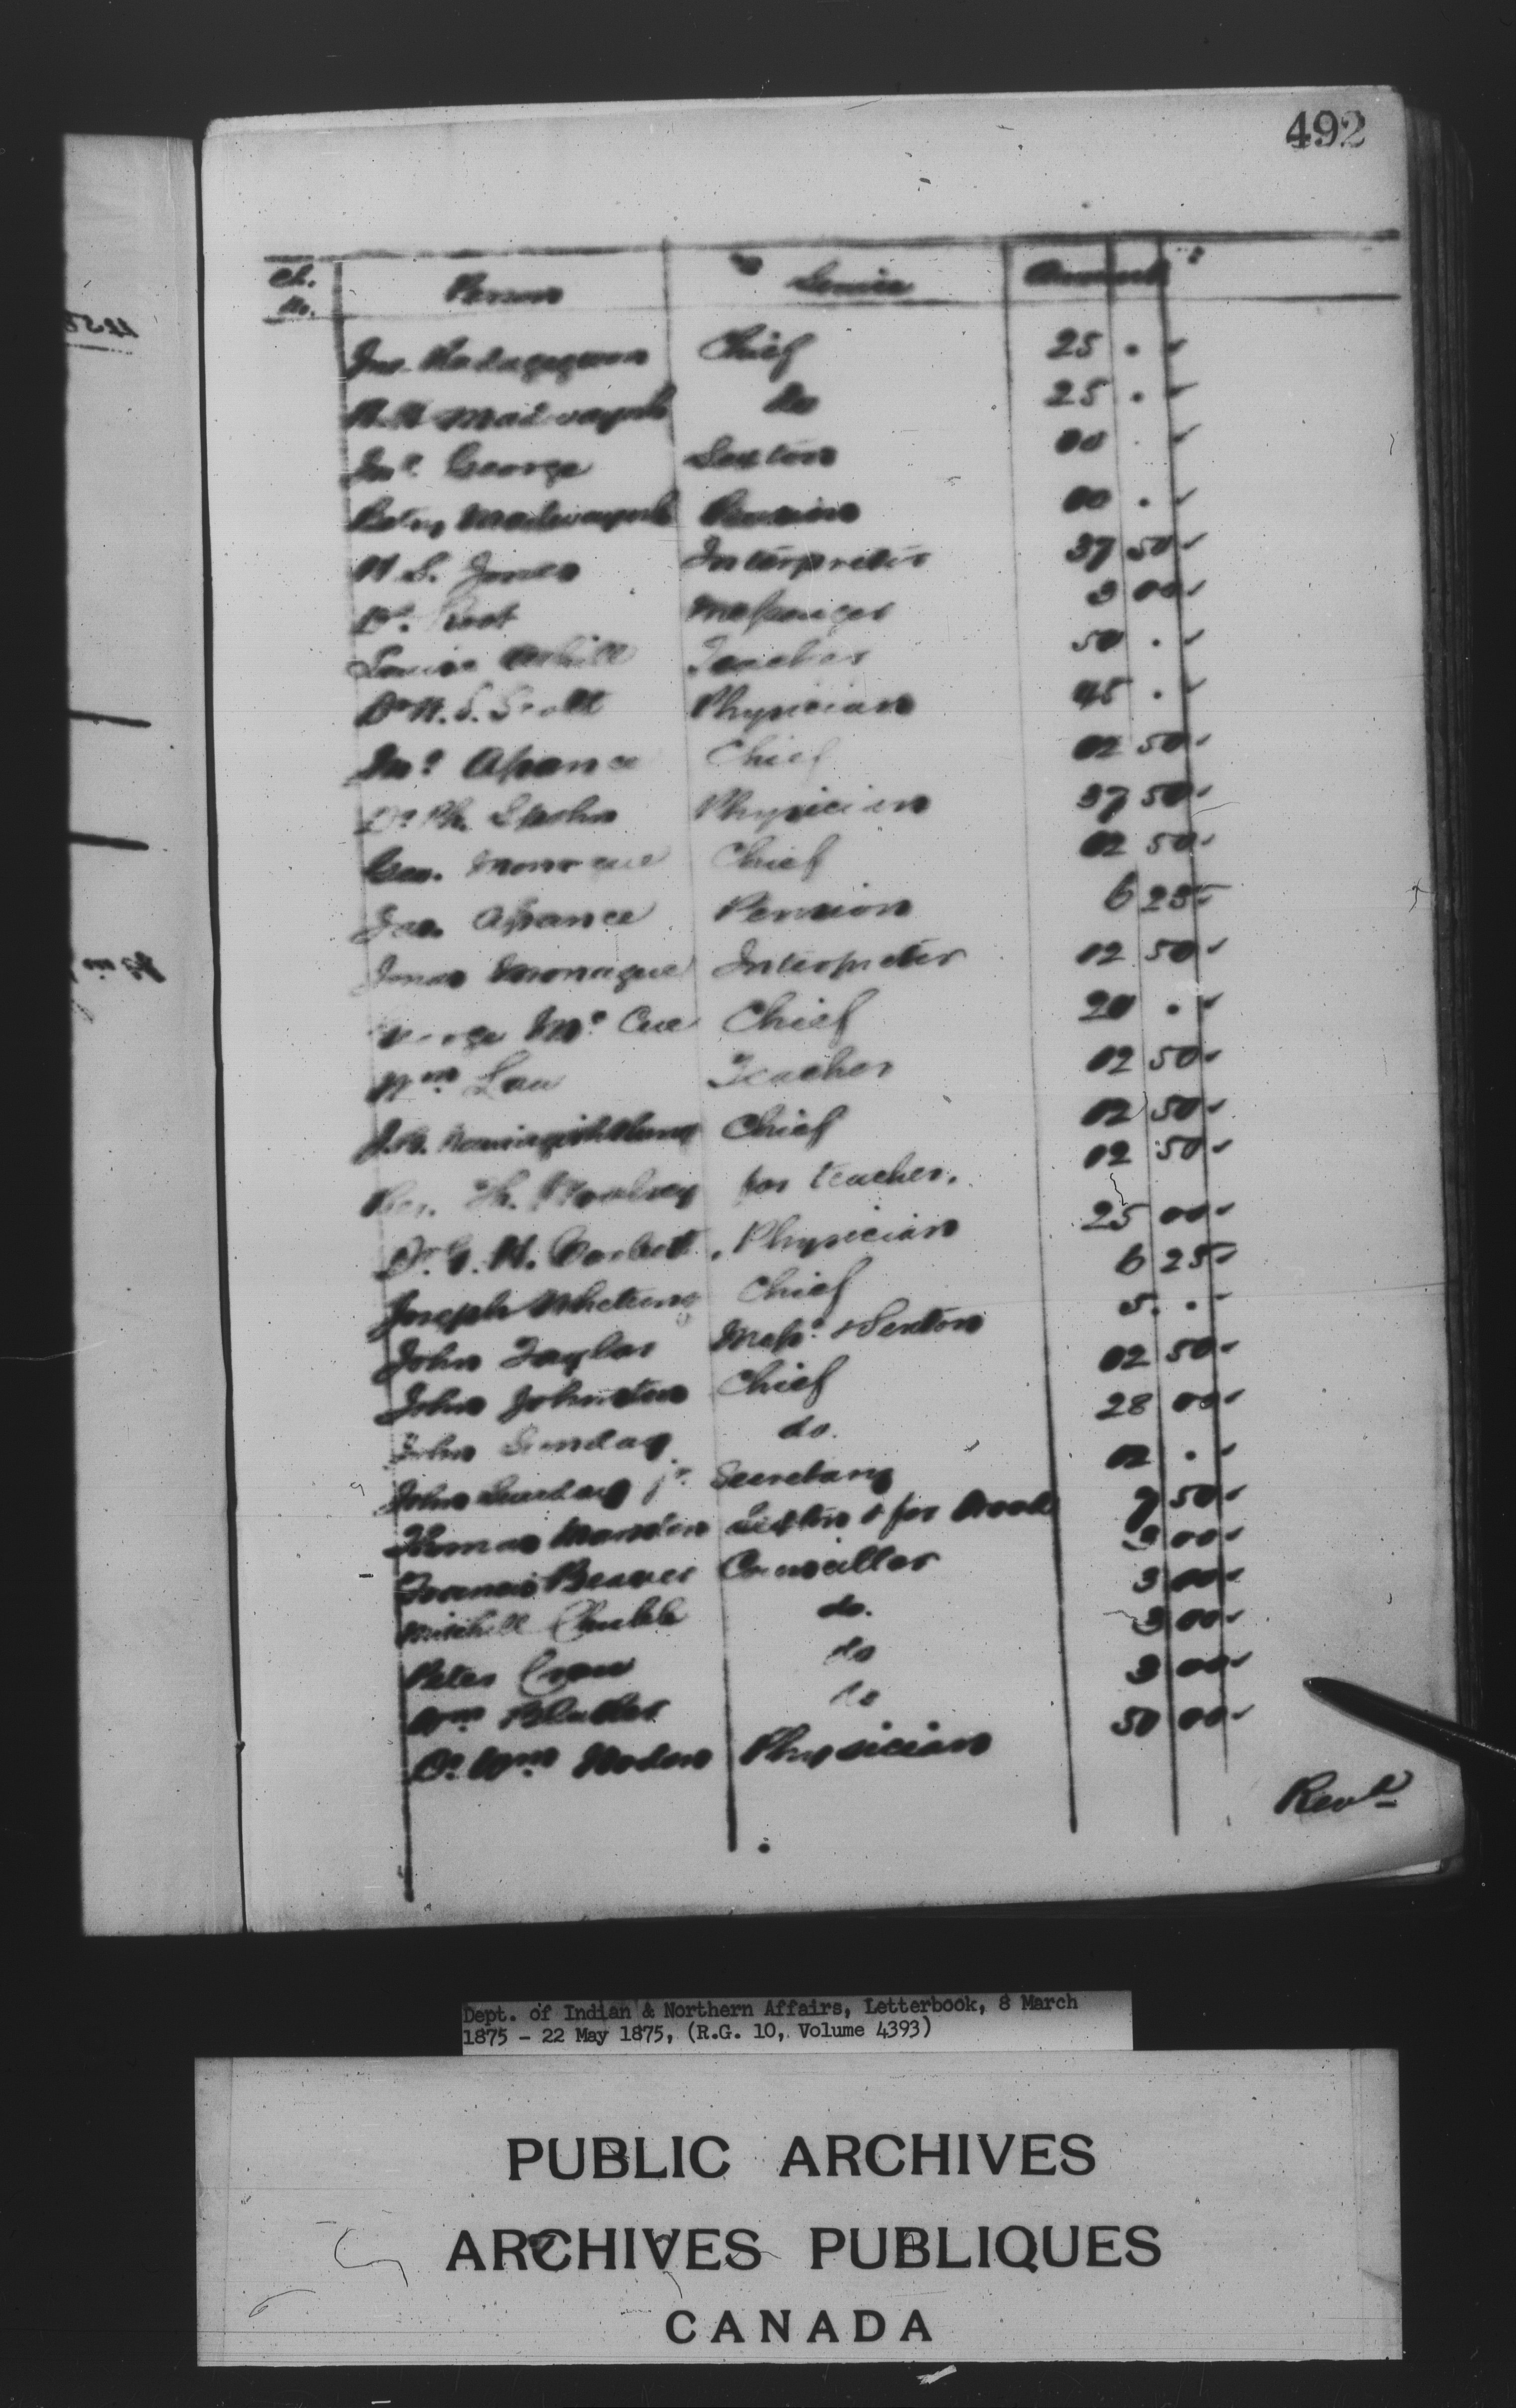 492
Ch. No. Person Service Amount
Chief 25 . "
do 25 . "
Jnº George Sexton
Pension
Jones Interpreter 37 50 "
Dº. Root Messenger 3 00 "
Teacher 50 . "
Dr W. S. Scott Physician 45 . "
Jnº Assance Chief 12 50 "
Dr Ph. Spohn Physician 37 50 "
Geo. Monague Chief 12 50 "
Jas. Assance Pension 6 25 "
James Monague Interpreter 12 50 "
George Mc Cue Chief 20 . "
Wm Law Teacher 12 50 "
Chief 12 50 "
Rev. Th. Woolsey for teacher. 12 50 "
Dr. G. H. Corbett. Physician 25 00 "
Joseph Whetung Chief 6 25 "
John Taylor Messr. & Sexton 5 . "
John Johnston Chief 12 50 "
John Sunday do. 28 00 "
John Sunday jr. Secretary 12 . "
Thomas Marsden Sexton & for Wood 7 50 "
Francis Beaver Councillor 3 00 "
Mitchell Chubb do. 3 00 "
Peter Crow do 3 00 "
Wm Blaker do 3 00 "
Dr. Wm Physician 50 00 "
Revd
Dept. of Indian & Northern Affairs, Letterbook, 8 March
1875 - 22 May 1875, (R.G. 10, Volume 4393)
PUBLIC ARCHIVES
ARCHIVES PUBLIQUES
CANADA